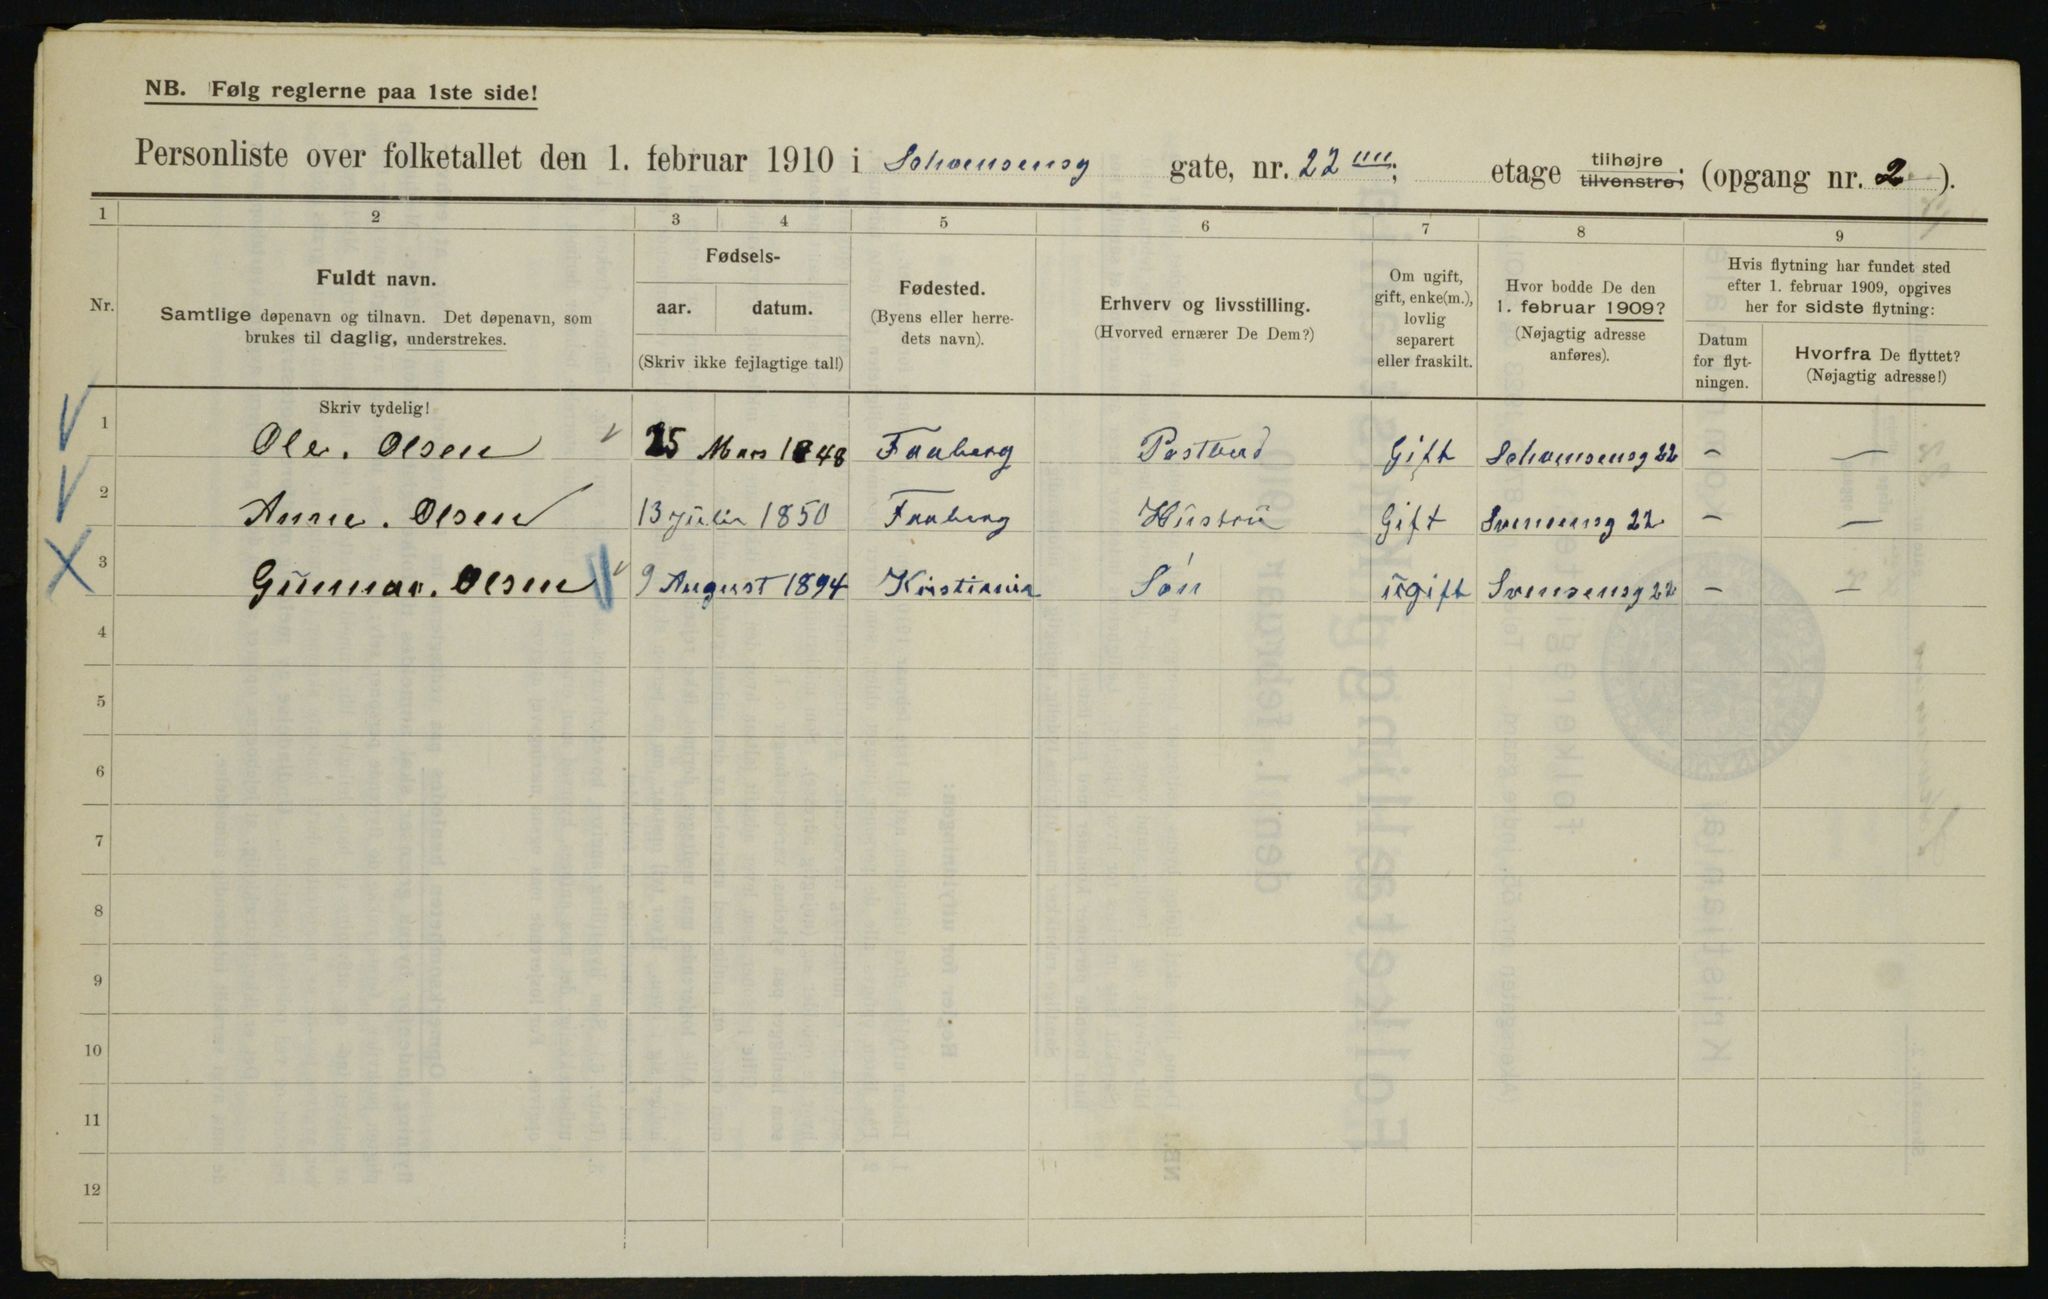 NB. Følg reglerne paa 1ste side!
Personliste over folketallet den 1. februar 1910 i Schvensensg gate, nr. 22 ""; etage tilhøjre tilvenstre; (opgang nr. 2 ).
1 2 3 4 5 6 7 8 9
Nr.
Fuldt navn.
Samtlige døpenavn og tilnavn. Det døpenavn, som
brukes til daglig, understrekes.
Skriv tydelig!
Fødsels-
aar. datum.
(Skriv ikke fejlagtige tal!)
Fødested.
(Byens eller herre-
dets navn).
Erhverv og livsstilling.
(Hvorved ernærer De Dem?)
Om ugift,
gift, enke(m.),
lovlig
separert
eller fraskilt.
Hvor bodde De den
1. februar 1909?
(Nøjagtig adresse
anføres).
Hvis flytning har fundet sted
efter 1. februar 1909, opgives
her for sidste flytning:
Datum
for flyt-
ningen.
Hvorfra De flyttet?
(Nøjagtig adresse!)
1 Ole. Olsen 25 Mars 1848 Faaberg Postbud Gift Schvensensg 22 – –
2 Anne. Olsen 13 Julie 1850 Faaberg Hustru Gift Svensensg 22 – –
3 Gunnar. Olsen 9 August 1894 Kristiania Søn ugift Svensensg 22 – –
4
5
6
7
8
9
10
11
12